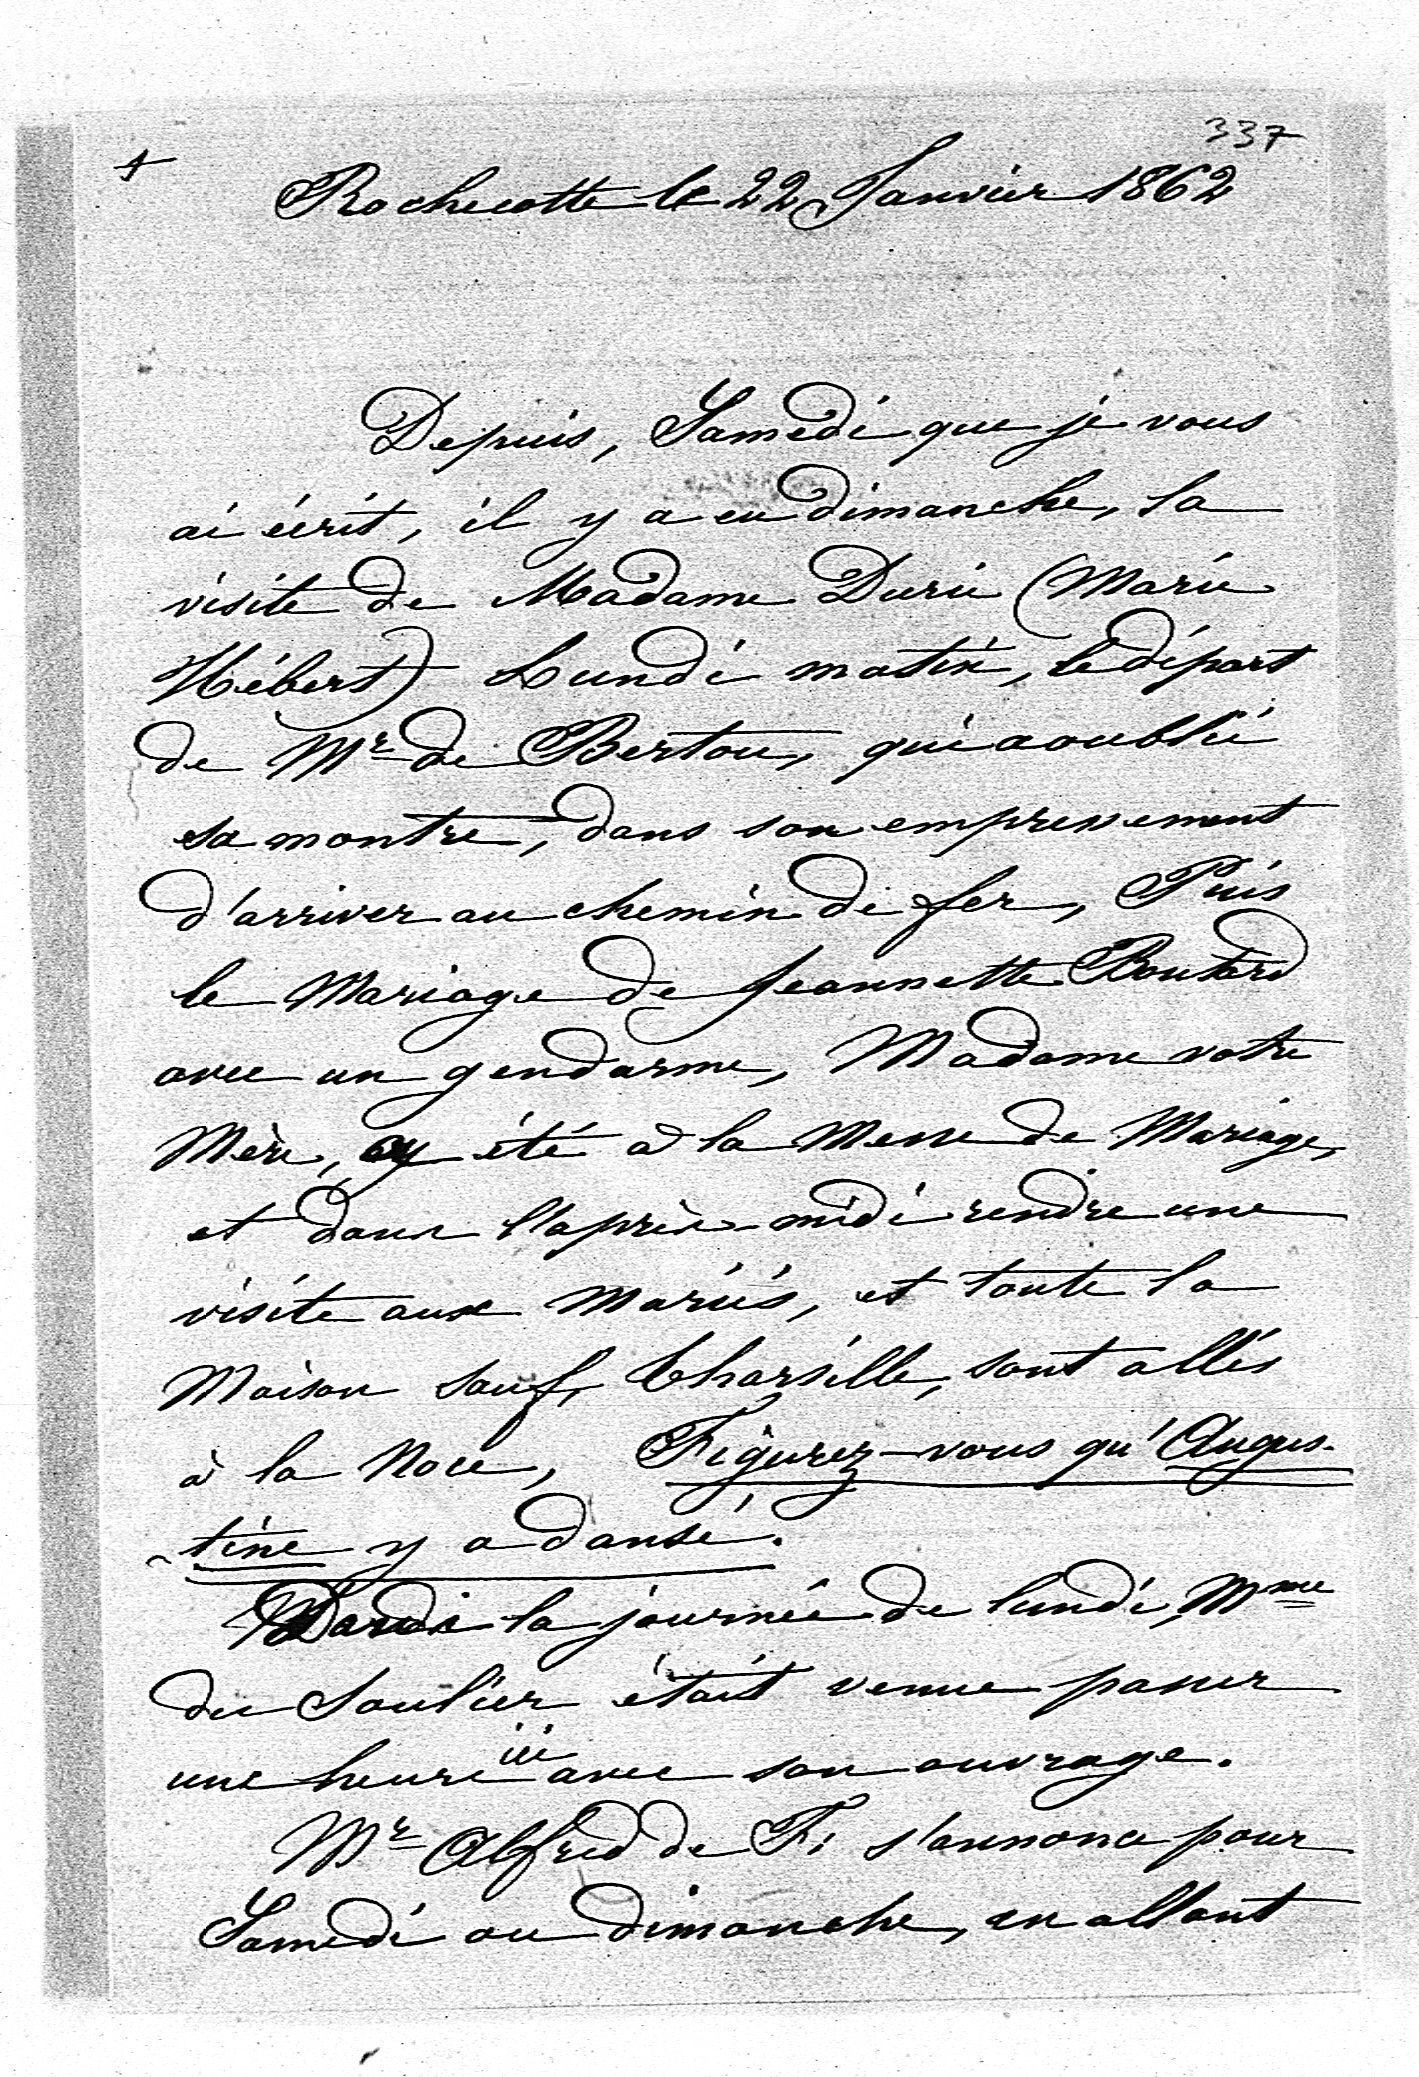 337
Rochecotte le 22 Janvier 1862
Depuis, Samedi que je vous
ai écrit, il y a eu dimanche, la
visite de Madame Durie (Marie
Hébert) Lundi matin, le départ
de Mr de Bertou, qui a oublié
sa montre, dans son empressement
d'arriver au chemin de fer, Puis
le Mariage de Jeannette Boutard
avec un gendarme, Madame votre
Mère, a y été à la Messe de Mariage,
et dans l'après-midi rendre une
visite aux Mariés, et toute la
Maison sauf, Charsille, sont allés
à la Noce, Figurez-vous qu'Augus-
tine y a dansé.
la journée de lundi, Mme
du Soulier était venue passer
une heure ici avec son ouvrage.
Mr Alfred de F: s'annonce pour
Samedi ou dimanche, en allant